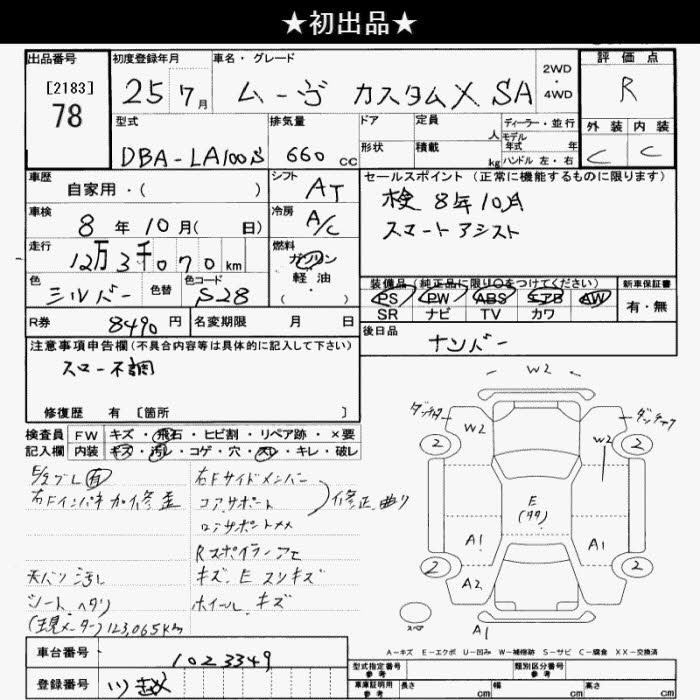 ★初出品★
出品番号
[2183]
78
初度登録年月
25 7月
車名・グレード
ムーヴ カスタムX SA
2WD
・
4WD
評価点
R
外装 内装
C C
型式
DBA-LA100S
排気量
660 CC
ドア
形状
定員
人
積載
kg
ディーラー・並行
モデル
年式 年
ハンドル 左・右
車歴
自家用・( )
シフト
AT
車検
8年10月( 日)
冷房
A/C
走行
12万3千070km
燃料
ガソリン
軽油
( )
色
シルバー
色替
色コード
S28
セールスポイント(正常に機能するものに限ります)
検 8年10月
スマートアシスト
装備品(純正品に限り○をつけてください)
PS PW ABS エアB AW
SR ナビ TV カワ
新車保証書
有・無
R券 8490円
名変期限 月 日
後日品
ナンバー
注意事項申告欄(不具合内容等は具体的に記入して下さい)
スロー不調
修復歴 有 [箇所 ]
検査員
記入欄
FW キズ・飛石・ヒビ割・リペア跡・×要
内装 キズ・汚レ・コゲ・穴・スレ・キレ・破レ
右Fインパネ加修歪
右Fサイドメンバー
コアサポート
修正、曲り
ロアサポート××
Rスポイラー
天バリ汚レ
キズ、E スリキズ
シート、ヘタリ
ホイール、キズ
(現メーター)123,065km
W2
W2
W2
2
2
2
2
E
A1
A1
A2
A1
スペア
A-キズ E-エクボ U-凹み W-補修跡 S-サビ C-腐食 XX-交換済
車台番号 1023349
登録番号
型式指定番号
参考
類別区分番号
参考
車庫証明用
参考
長さ cm
幅 cm
高さ cm